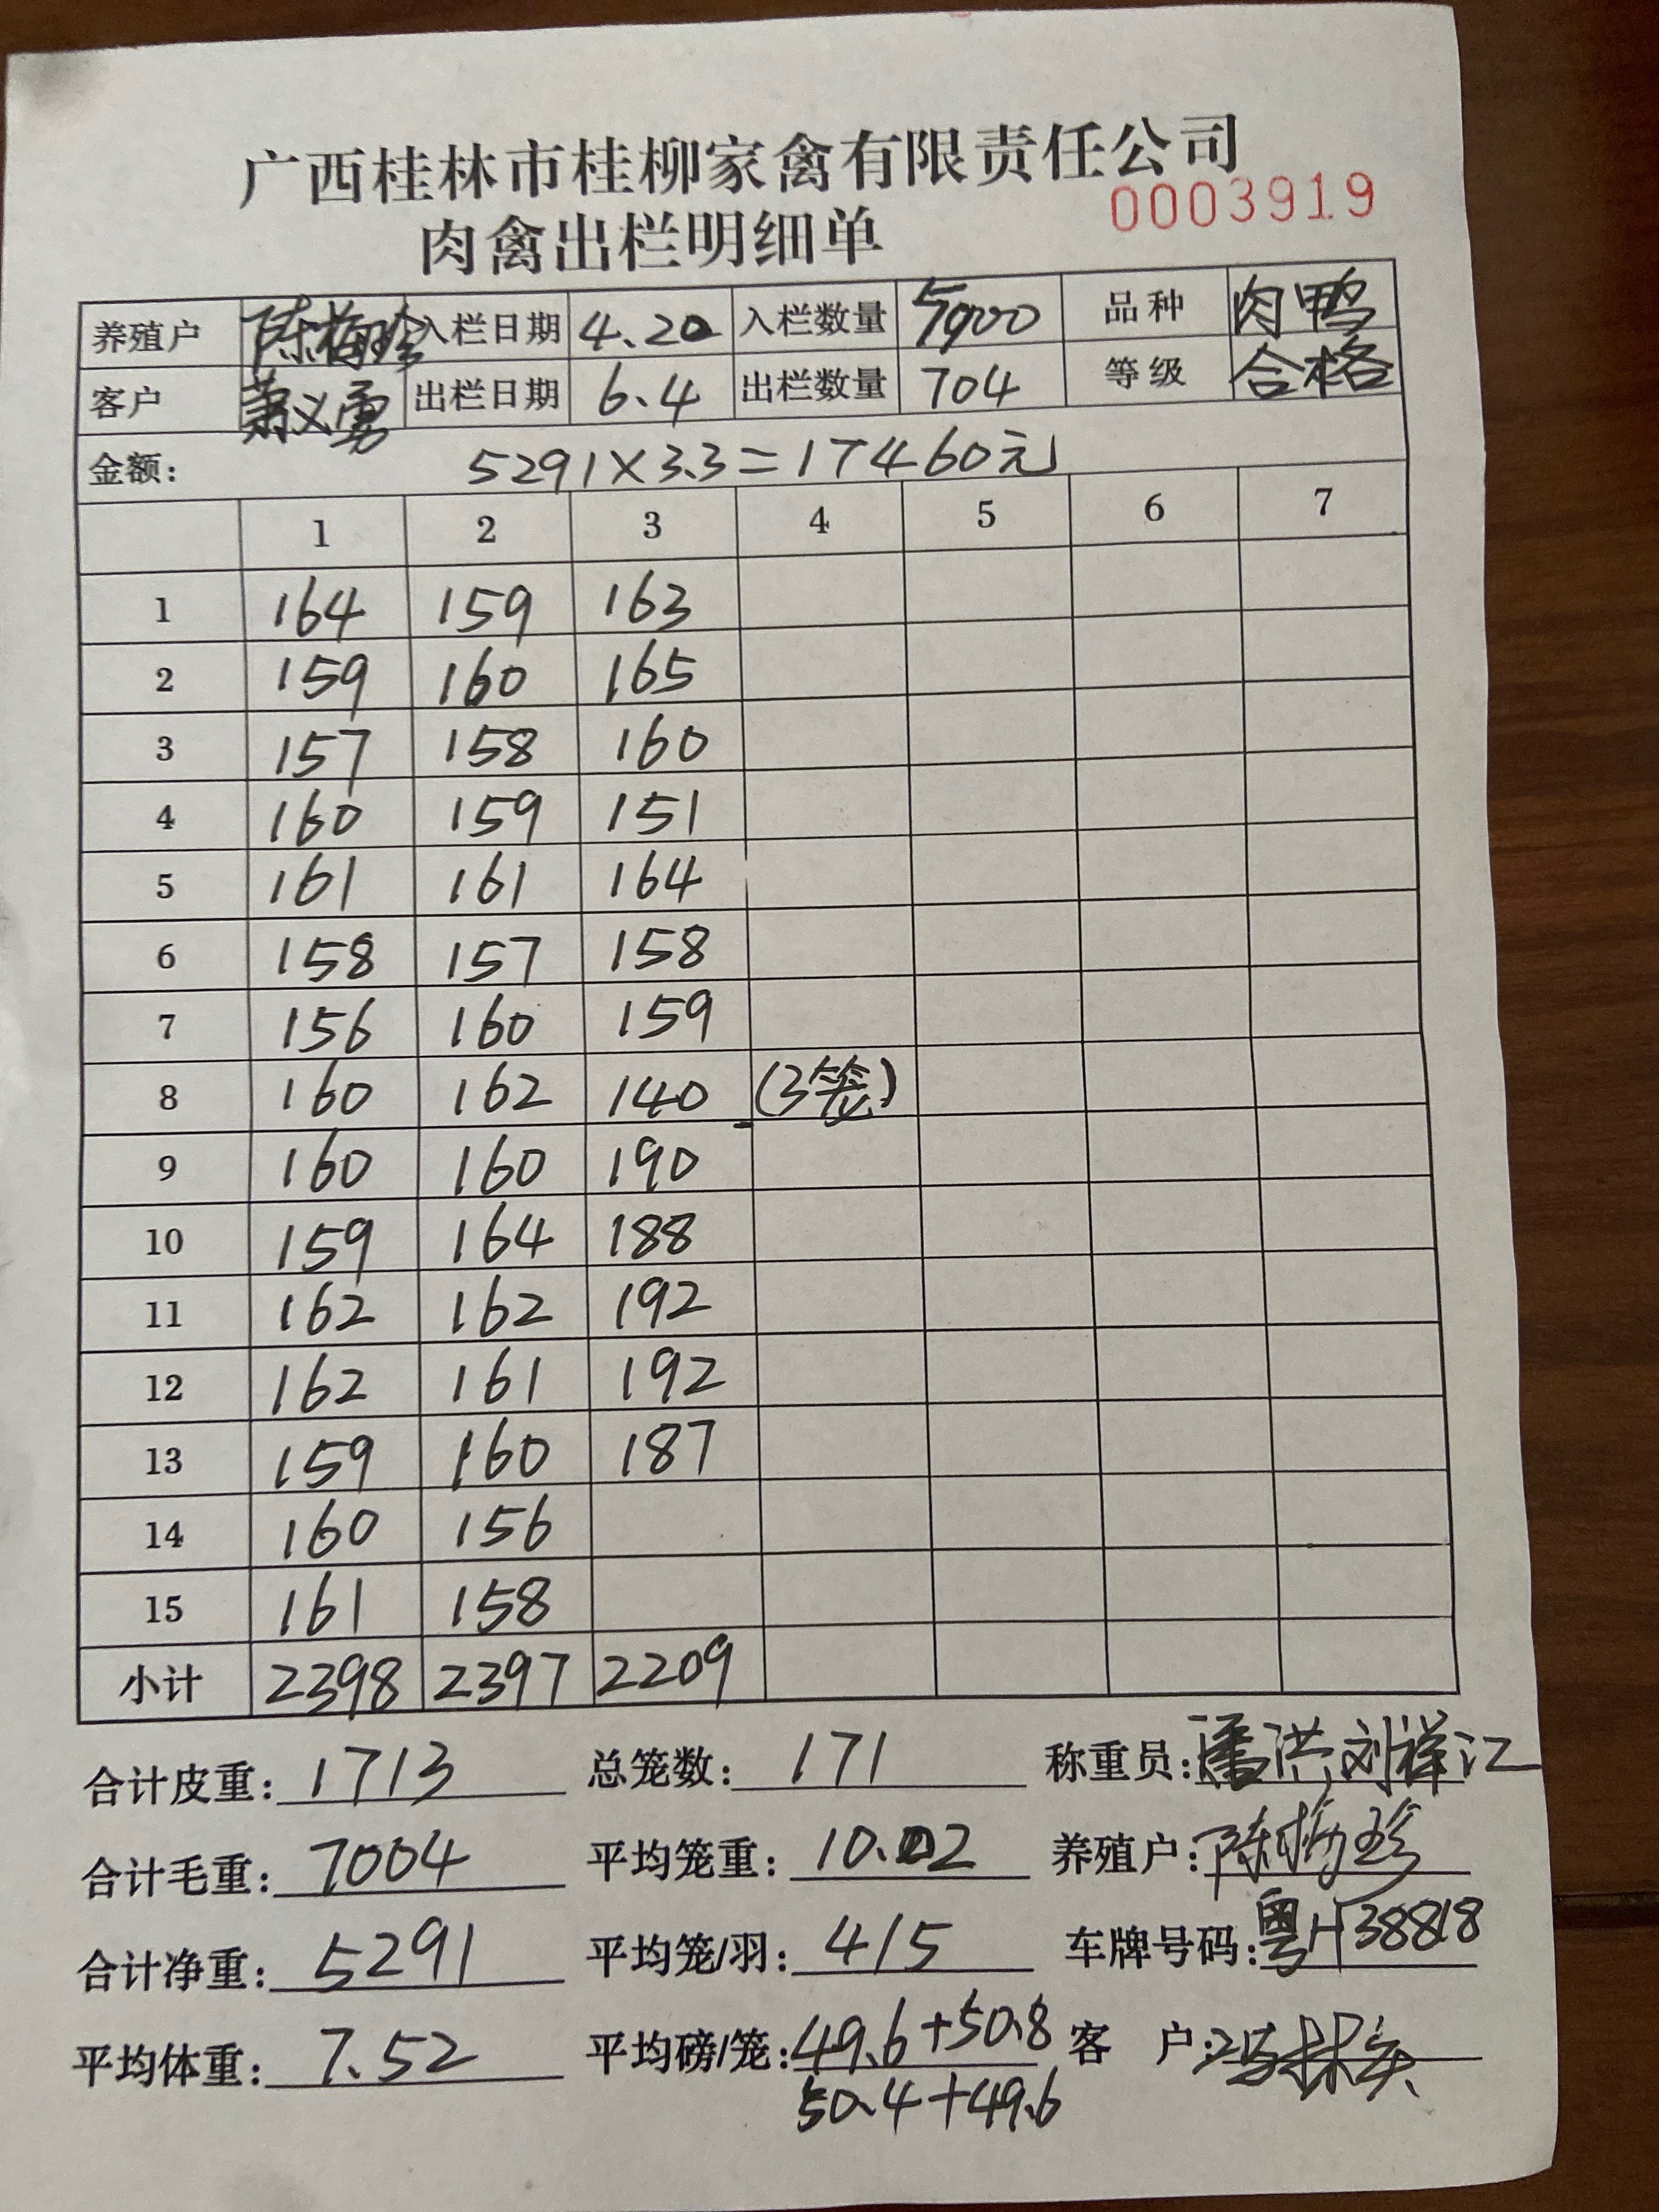 广西桂林市桂柳家禽有限责任公司
0003919
肉禽出栏明细单
养殖户 陈梅珍 入栏日期 4.20 入栏数量 5900 品种 肉鸭
客户 萧义勇 出栏日期 6.4 出栏数量 704 等级 合格
金额: 5291×3.3=17460元
1 2 3 4 5 6 7
1 164 159 163
2 159 160 165
3 157 158 160
4 160 159 151
5 161 161 164
6 158 157 158
7 156 160 159
8 160 162 140 (3笼)
9 160 160 190
10 159 164 188
11 162 162 192
12 162 161 192
13 159 160 187
14 160 156
15 161 158
小计 2398 2397 2209
合计皮重: 1713 总笼数: 171 称重员: 潘洪 刘祥江
合计毛重: 7004 平均笼重: 10.02 养殖户: 陈梅珍
合计净重: 5291 平均笼/羽: 4/5 车牌号码: 粤H38818
平均体重: 7.52 平均磅/笼: 49.6+50.8 客 户:
50.4+49.6